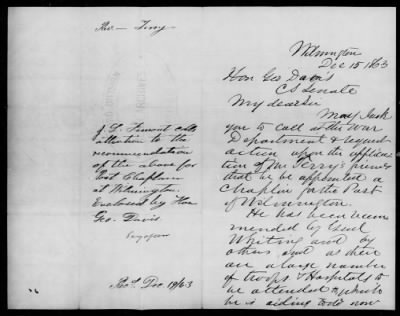 Rev - Terry
J. L. Fremont calls
attention to the
recommendation
of the above for
Post Chaplain
at Wilmington.
Enclosed by Hon
Geo. Davis
Recd Dec 19/63
Wilmington
Dec 15 1863
Hon Geo Davis
CS Senate
My dear Sir
May I ask
you to call at the War
Department & request
action upon the applica
tion of Mr Terry's friends
that he be appointed a
Chaplin for the Post
of Wilmington.
He has been recom
mended by Genl
Whiting and by
others and as there
are a large number
of troops & Hospitals to
be attended to which
he is aiding to do now